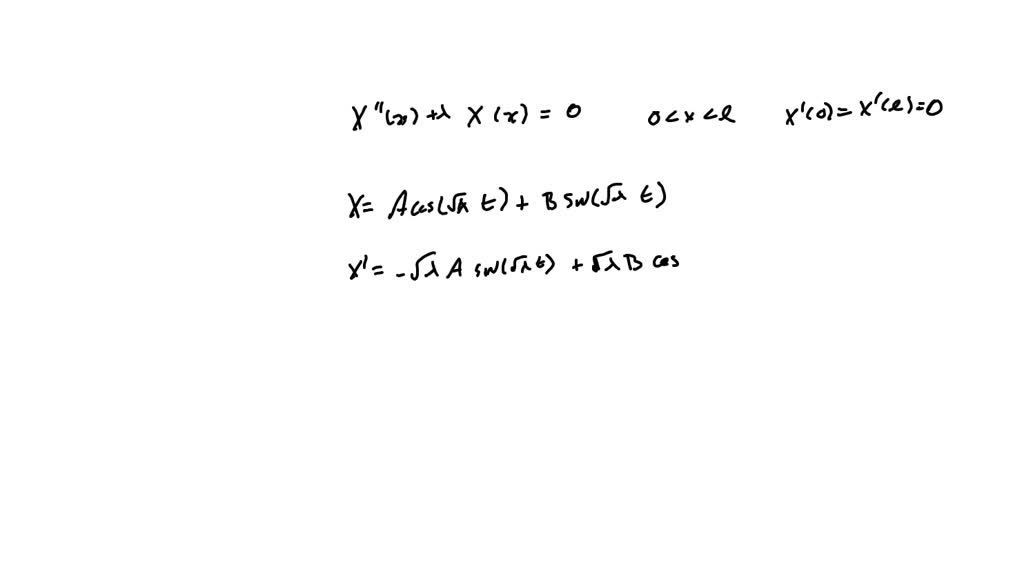 X''(x) + λ X(x) = 0    0 < x < l    X'(0) = X'(l) = 0
X = A cos(√λ t) + B sin(√λ t)
X' = -√λ A sin(√λ t) + √λ B cos